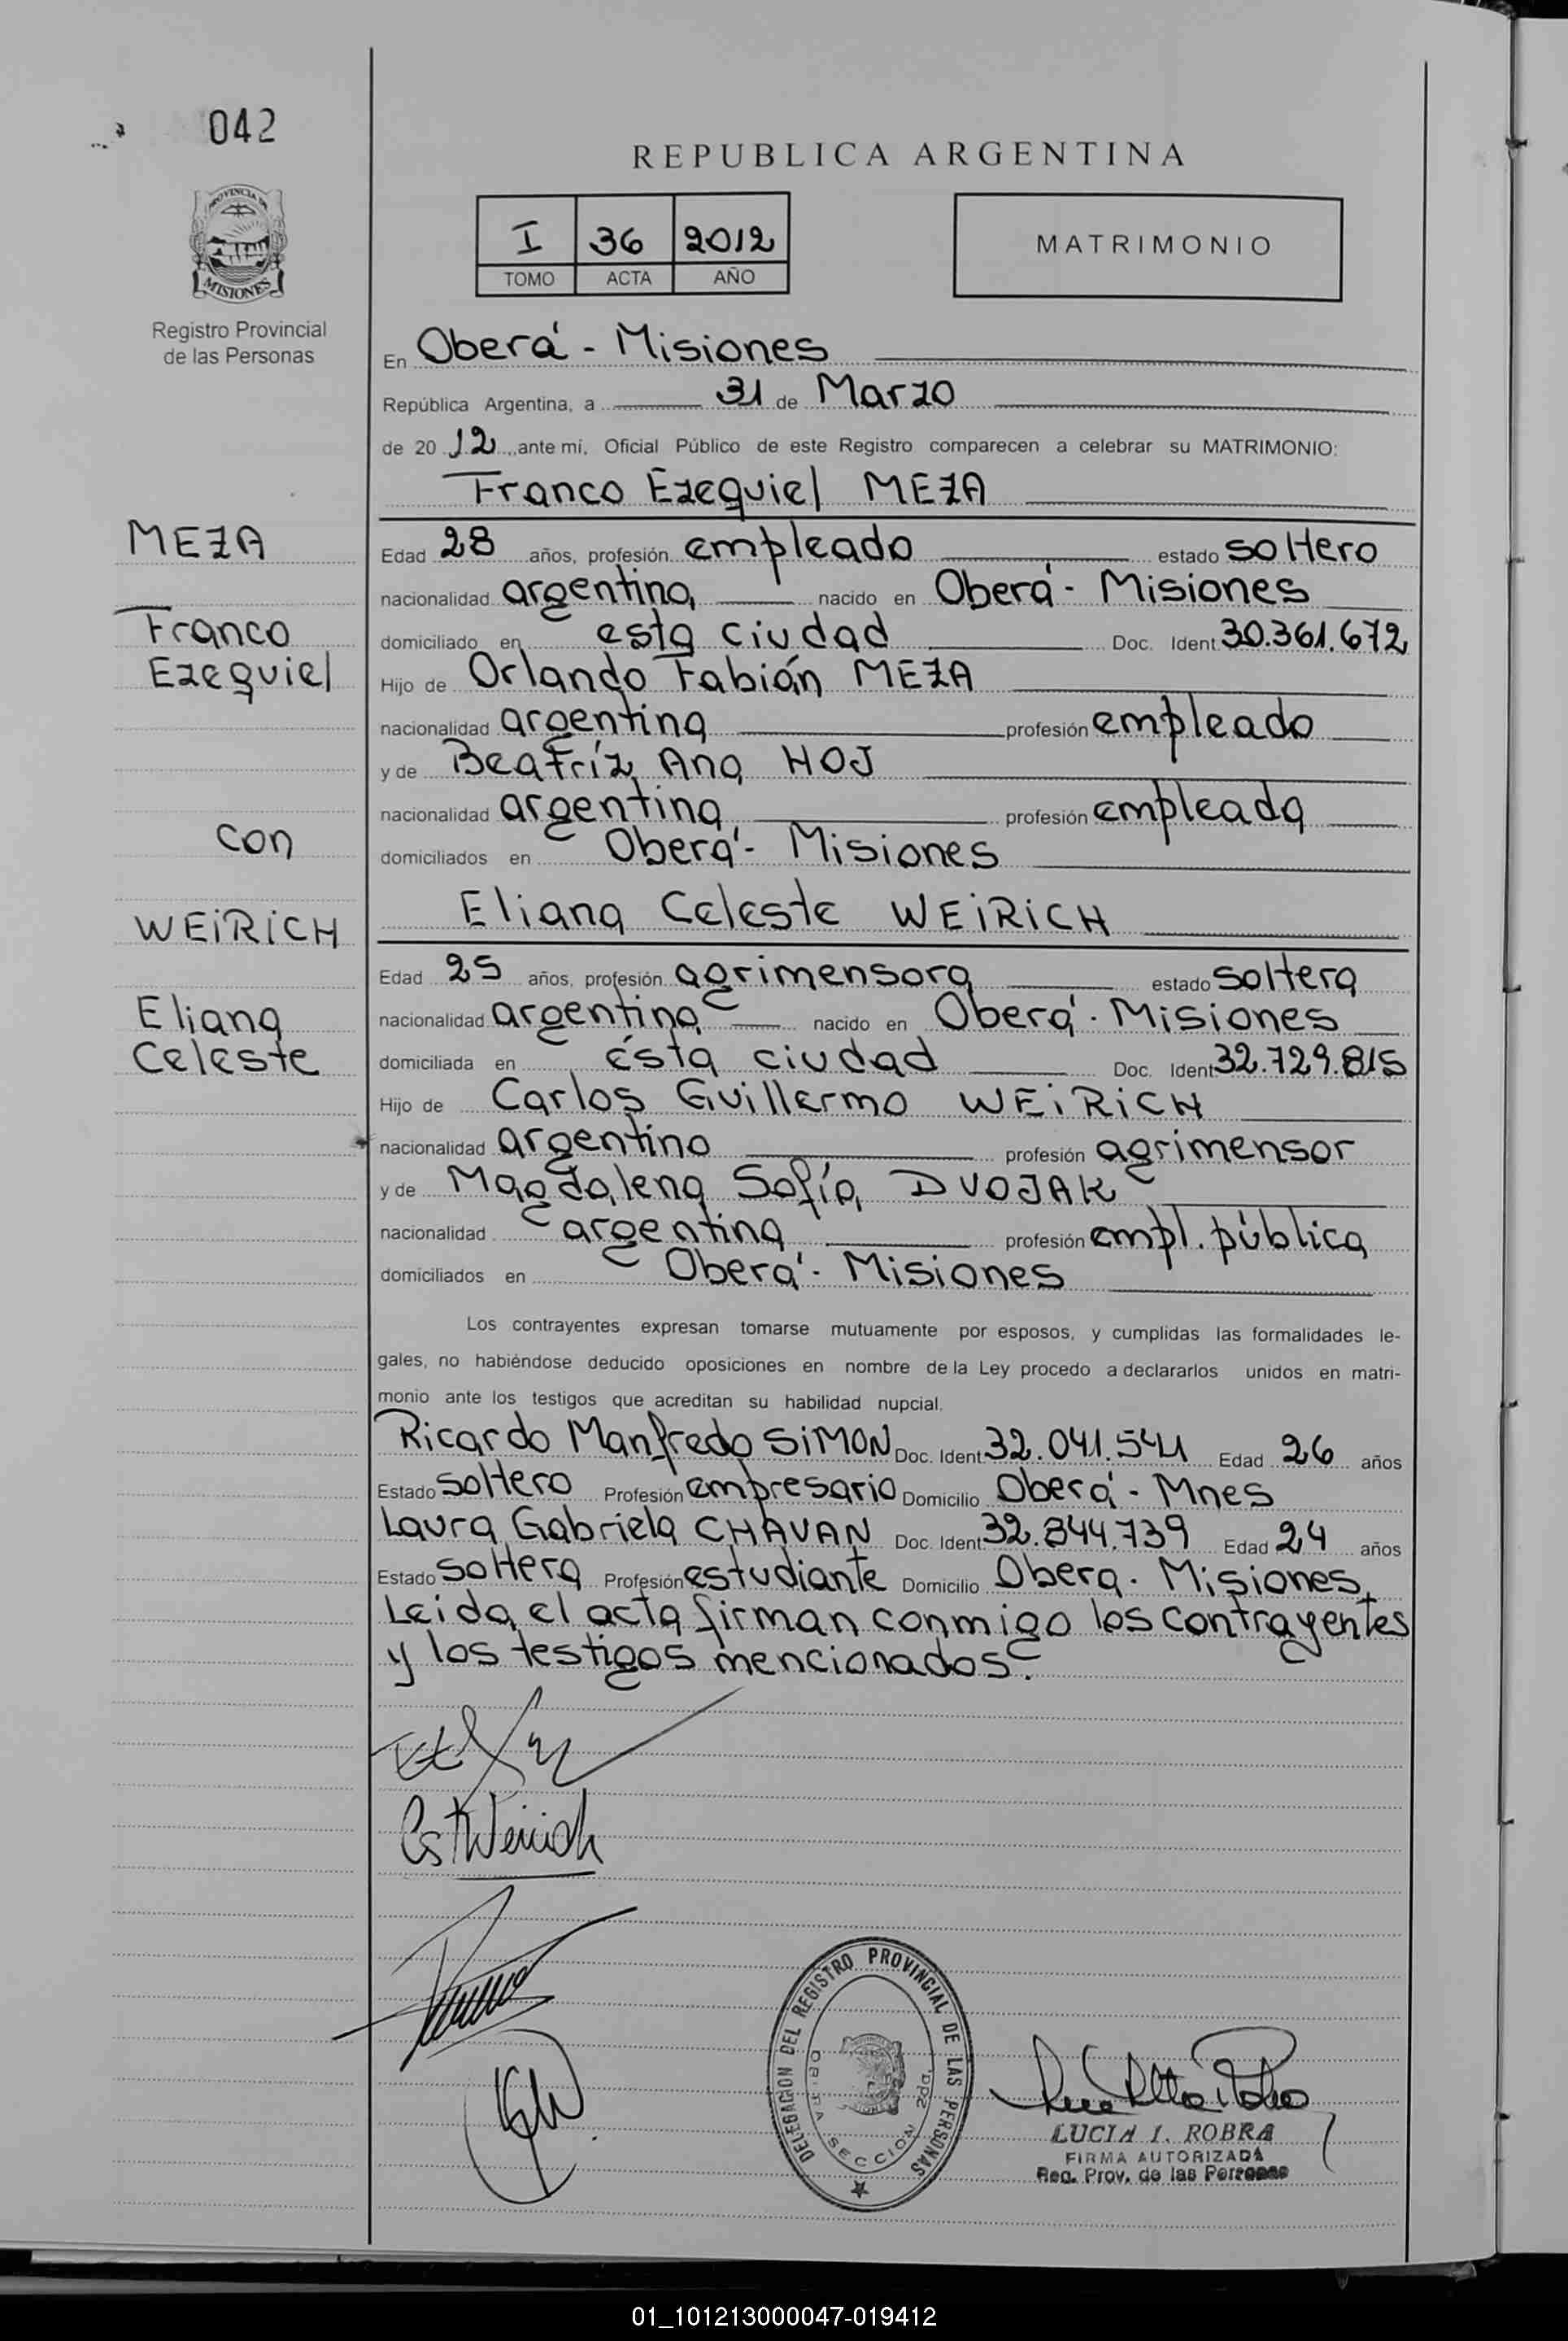 042
REPUBLICA ARGENTINA
I 36 2012
TOMO ACTA AÑO
MATRIMONIO
PROVINCIA DE
MISIONES
Registro Provincial
de las Personas
En Oberá - Misiones
República Argentina, a 31 de Marzo
de 20 12 ante mí, Oficial Público de este Registro comparecen a celebrar su MATRIMONIO:
Franco Ezequiel MEZA
MEZA
Edad 28 años, profesión empleado estado soltero
nacionalidad argentina nacido en Oberá - Misiones
Franco
domiciliado en esta ciudad Doc. Ident 30.361.672
Ezequiel
Hijo de Orlando Fabián MEZA
nacionalidad argentina profesión empleado
y de Beatríz Ana HOJ
nacionalidad argentina profesión empleada
con
domiciliados en Oberá - Misiones
WEiRiCH
Eliana Celeste WEiRiCH
Edad 25 años, profesión agrimensora estado soltera
Eliana
nacionalidad argentina nacido en Oberá - Misiones
Celeste
domiciliada en ésta ciudad Doc. Ident 32.729.815
Hijo de Carlos Guillermo WEiRiCH
nacionalidad argentino profesión agrimensor
y de Magdalena Sofía DVOJAK
nacionalidad argentina profesión empl. pública
domiciliados en Oberá - Misiones
Los contrayentes expresan tomarse mutuamente por esposos, y cumplidas las formalidades le-
gales, no habiéndose deducido oposiciones en nombre de la Ley procedo a declararlos unidos en matri-
monio ante los testigos que acreditan su habilidad nupcial.
Ricardo Manfredo SiMON Doc. Ident 32.041.541 Edad 26 años
Estado soltero Profesión empresario Domicilio Oberá - Mnes
Laura Gabriela CHAVAN Doc. Ident 32.844.739 Edad 24 años
Estado soltera Profesión estudiante Domicilio Obera - Misiones,
Leida el acta firman conmigo los contrayentes
y los testigos mencionados.
Weirich
DELEGACION DEL REGISTRO PROVINCIAL DE LAS PERSONAS
SECCION 2da.
LUCIA I. ROBRA
FIRMA AUTORIZADA
Reg. Prov. de las Personas
01_101213000047-019412